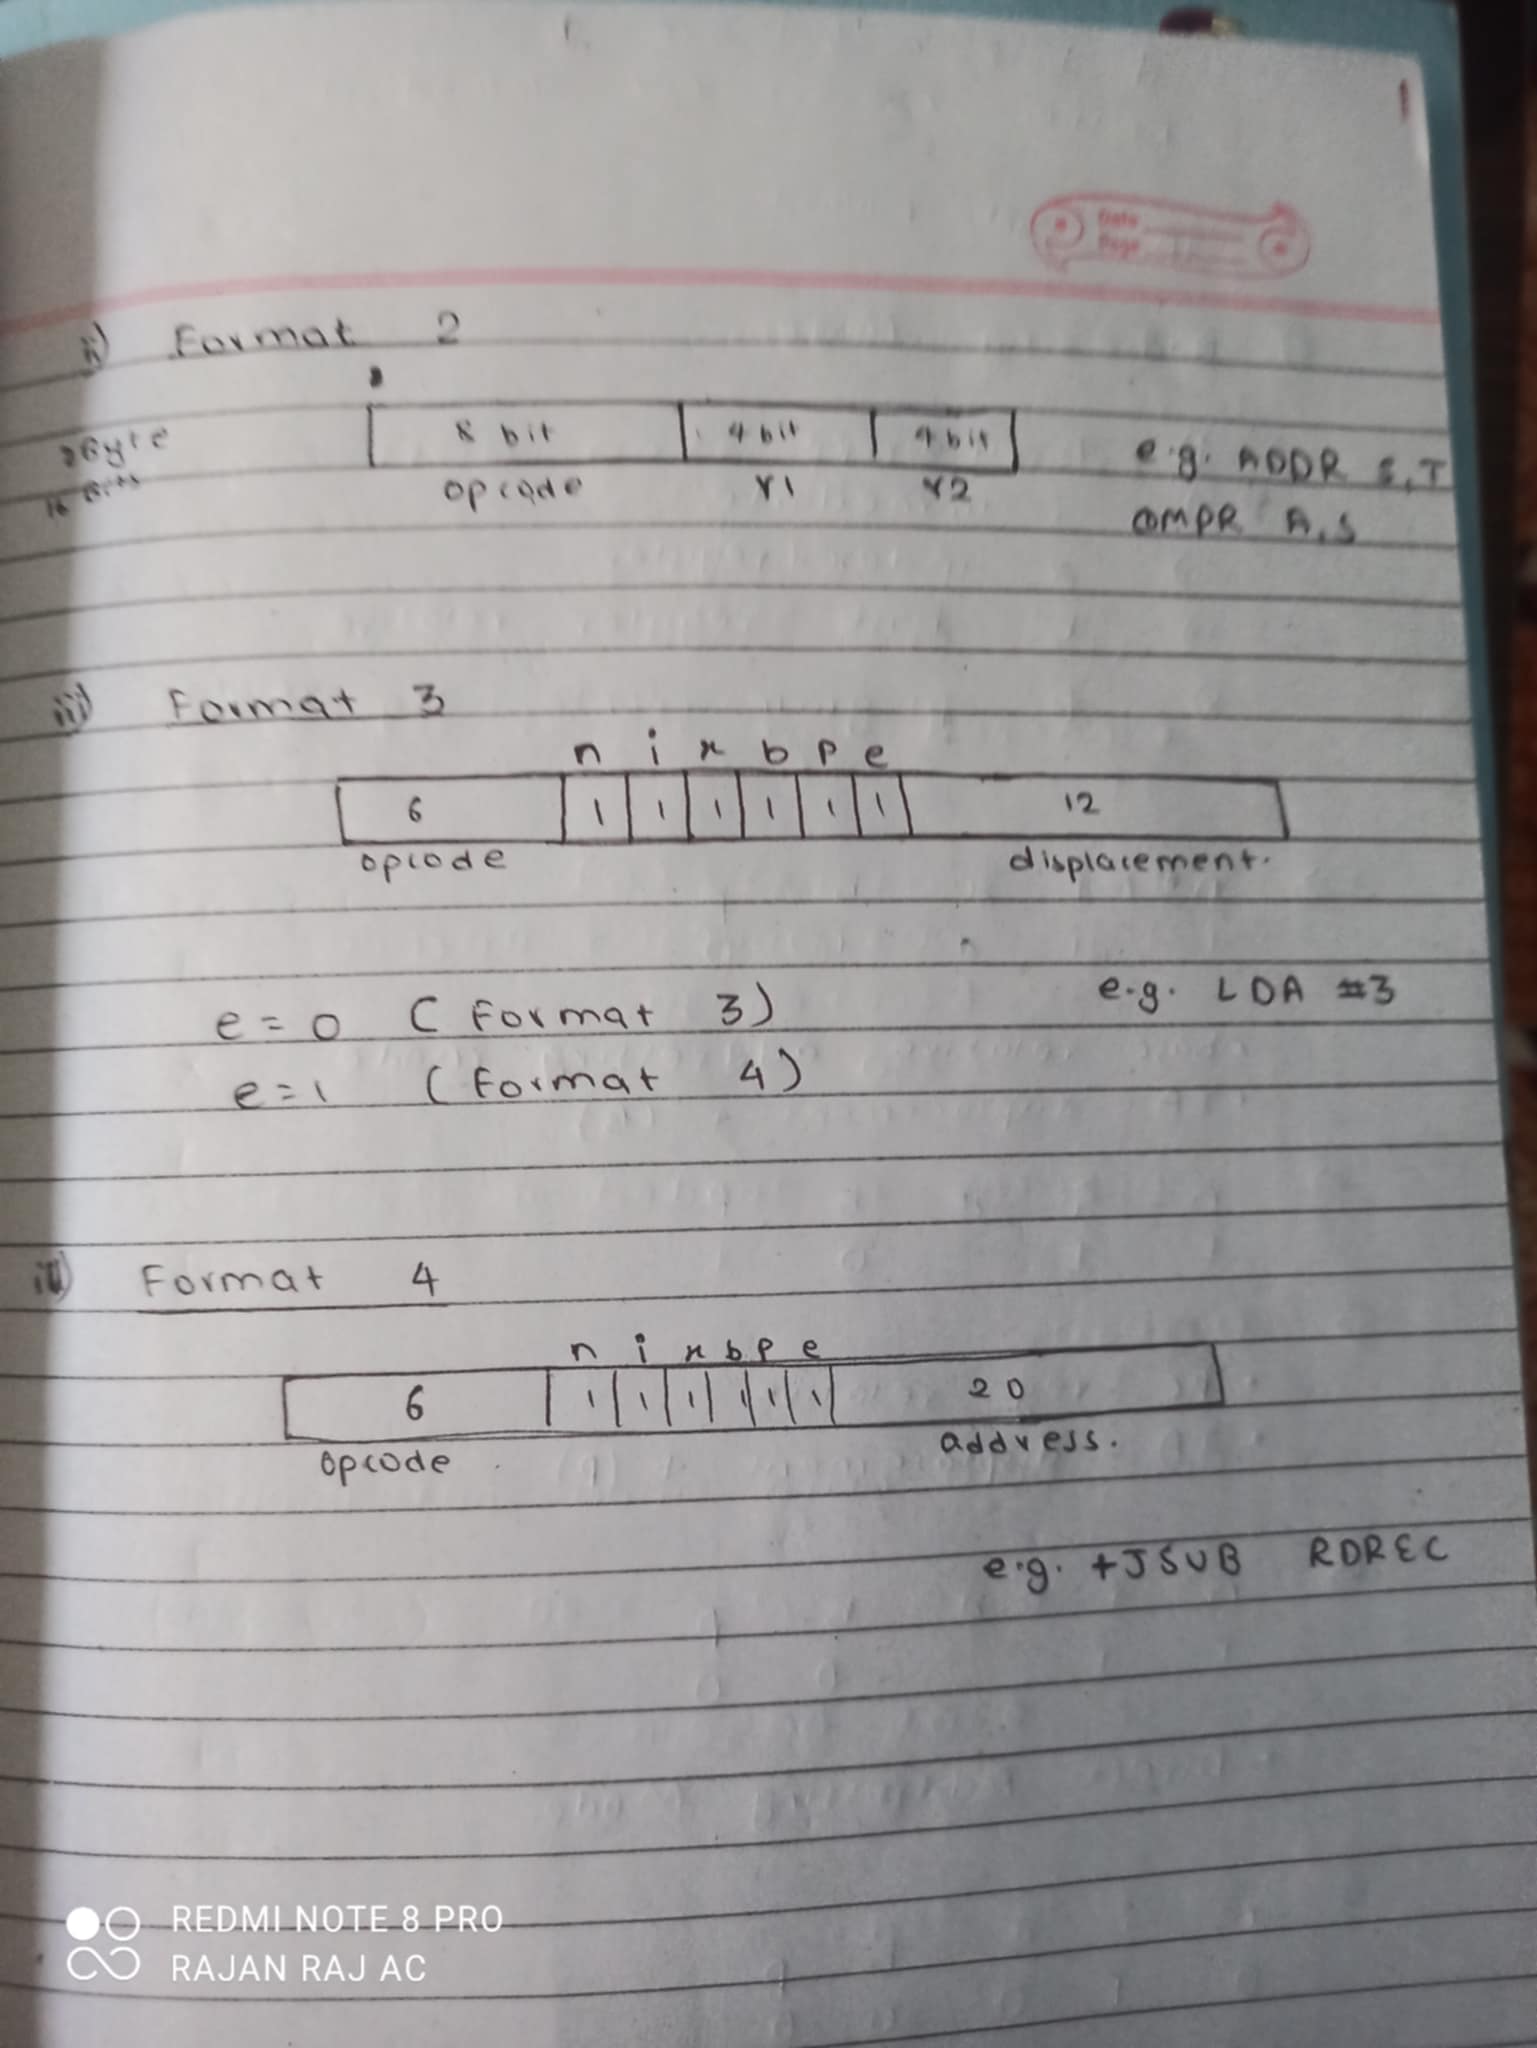 1
Date
Page
ii) Format 2
2Byte
16 Bits
8 bit 4 bit 4 bit
opcode r1 r2
e.g. ADDR S,T
COMPR A,S
iii) Format 3
n i x b p e
6 1 1 1 1 1 1 12
opcode displacement.
e=0 (Format 3)
e.g. LDA #3
e=1 (Format 4)
Format 4
n i x b p e
6 1 1 1 1 1 1 20
opcode address.
e.g. +JSUB RDREC
REDMI NOTE 8 PRO
RAJAN RAJ AC